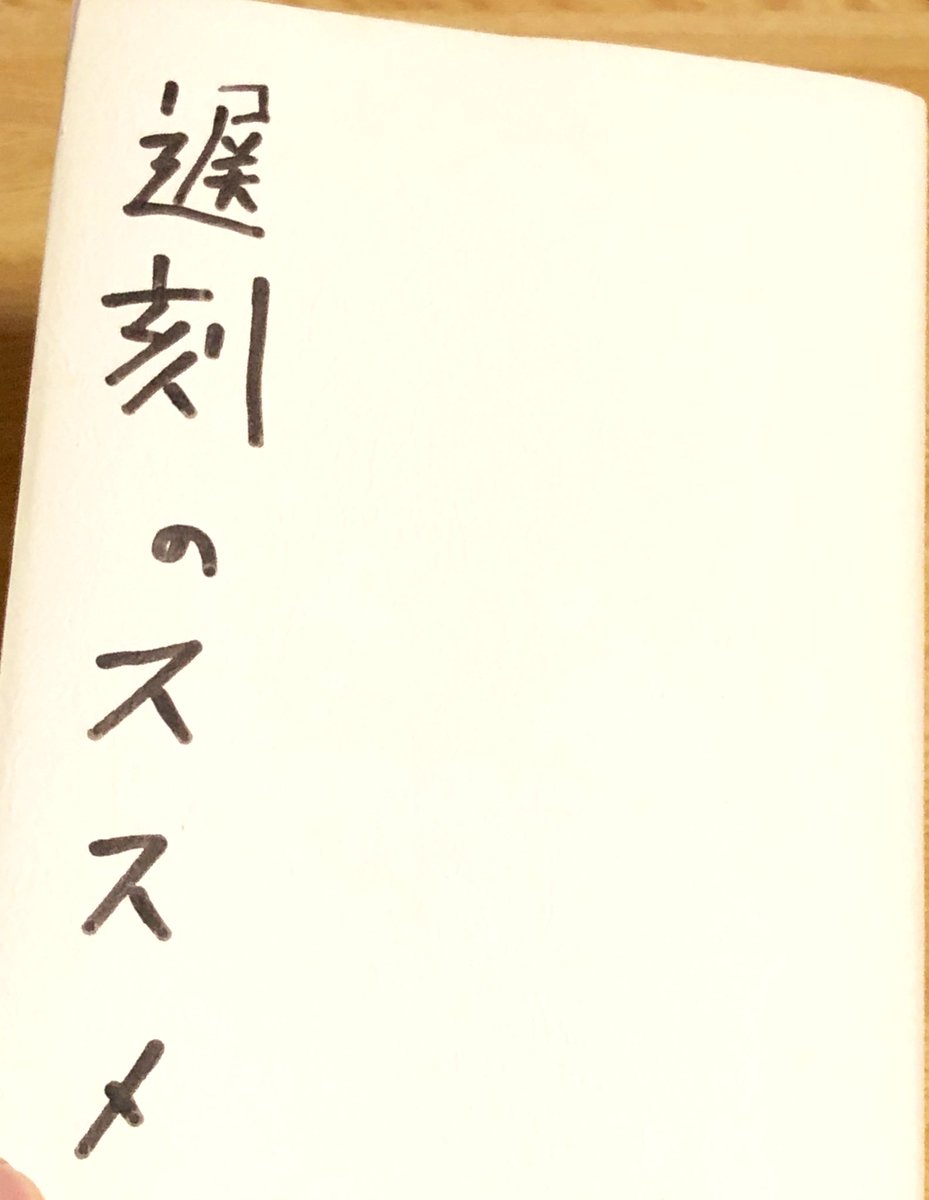 遅刻のススメ